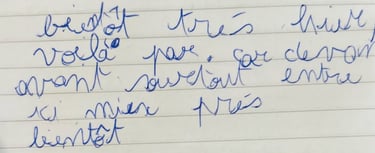 bientôt très hier,
voilà par. car devant
avant surtout entre
ici mieux près
bientôt